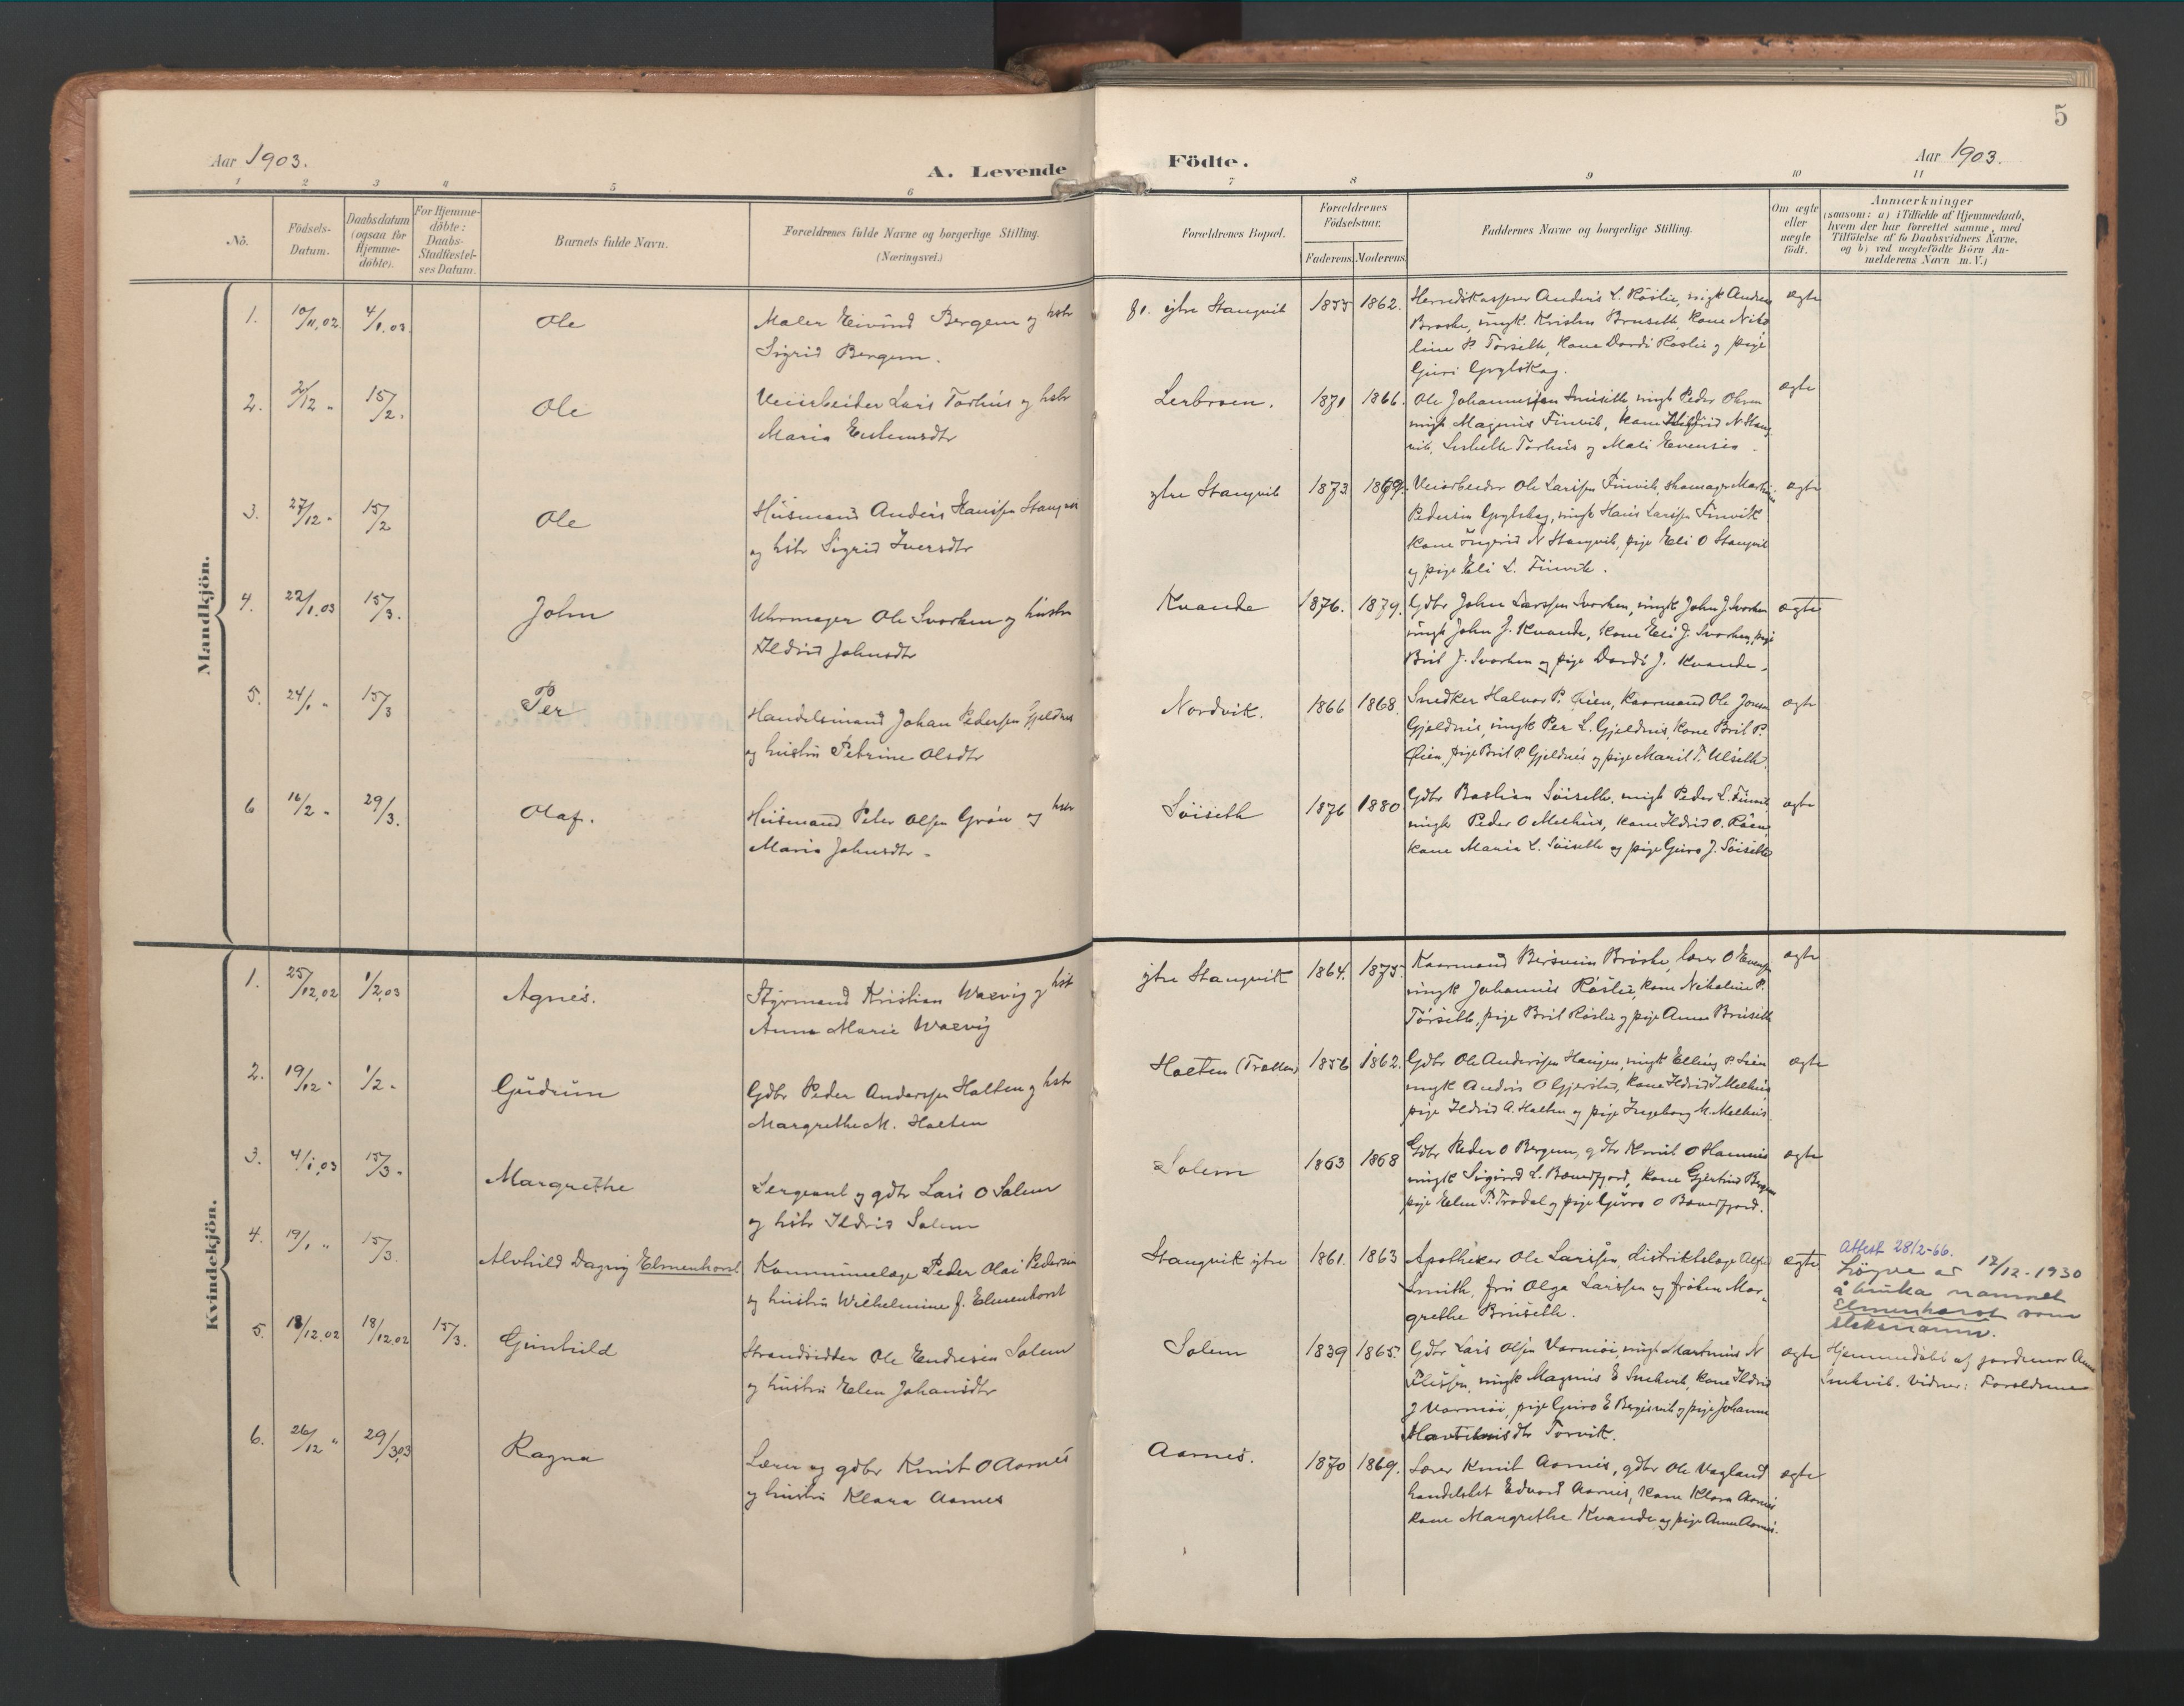 5
Aar 1903.
A. Levende Födte.
Aar 1903.
1 2 3 4 5 6 7 8 9 10 11
No.
Födsels-Datum.
Daabsdatum (ogsaa for Hjemme-döbte).
For Hjemme-döbte: Daabs-Stadfæstel-ses Datum.
Barnets fulde Navn.
Forældrenes fulde Navne og borgerlige Stilling. (Næringsvei.)
Forældrenes Bopæl.
Forældrenes Födselsaar.
Faderens. Moderens.
Faddernes Navne og borgerlige Stilling.
Om ægte eller uægte födt.
Anmærkninger
(saasom: a) i Tilfælde af Hjemmedaab,
hvem der har forrettet samme, med
Tilföielse af to Daabsvidners Navne,
og b) ved uægtefödte Börn An-
melderens Navn m. V.)
Mandkjön.
1. 10/11,02. 4/1,03. Ole
Maler Eivind Bergem og hstr
Sigrid Bergem.
ytre Stangvik 1855 1862.
Anders L. Röslie, ungk Anders
Broske, ungk. Kristen Bruseth, kone Niko
line P. Torseth, kone Dordi Roslie og pige
Guri
ægte
2. /12 " 15/2. Ole
Veiarbeider Lars Torhus og hstr
Maria
Lerbroen. 1871 1866.
Ole Johannessen ungk Peder Olsen
ungk Magnus Finvik, kone N Stang
vik, Torhus og Mali Evensen
ægte
3. 27/12 " 15/2 Ole
Husmand Anders Hanssen Stangvik
og hstr Sigrid Iversdtr
ytre Stangvik 1873 1869.
Veiarbeider Ole Larssen Finvik, skomager
Pedersen ungk Hans Larssen Finvik
kone Ingrid N Stangvik, pige Eli O Stangvik
og pige Eli L. Finvik.
ægte
4. 22/1,03 15/3. John
Uhrmager Ole Svorken og hustru
Ildrid Johnsdtr
Kvande 1876. 1879.
Gdbr John Larssen Svorken, ungk John J Svorken
ungk John J. Kvande, kone Eli J. Svorken, pige
Brit J. Svorken og pige Dordi J. Kvande.
ægte
5. 24/1 " 15/3 Per
Handelsmand Johan Pedersen Gjeldnes
og hustru Petrine Olsdtr
Nordvik. 1866 1868.
Snedker Halvor P. Øien, kaarmand Ole Jonsen
Gjeldnes, ungk Per L. Gjeldnes, kone Brit P.
Øien, pige Brit P. Gjeldnes og pige Marit T. Ulseth.
ægte
6 16/2 " 29/3. Olaf.
Husmand Peter Olsen Grön og hstr
Maria Johnsdtr.
Söiseth 1876 1880
Gdbr Bastian Söiseth, ungk Peder L. Finvik
ungk Peder O Melhus, kone Ildrid O.
kone Maria L. Söiseth og pige Guro J. Söiseth
ægte
Kvindekjön.
1. 25/12,02 1/2,03 Agnes.
Styrmand Kristian Waevig og hst
Anna Marie Waevig
ytre Stangvik 1864. 1875.
Kaarmand Broske, lærer O
ungk Johannes Röslie, kone Nikoline P.
Torseth, pige Brit Röslie og pige Anne Bruseth
ægte
2. 19/12 " 1/2 " Gudrun
Gdbr Peder Anderssen Halten og hstr
Margrethe M. Holten
Holten 1856 1862.
Gdbr Ole Anderssen ungk Elling P
ungk Anders O kone Ildrid J Melhus
pige Ildrid A. Halten og pige Ingeborg M. Melhus.
ægte
3. 4/1,03 15/3 " Margrethe
Sergeant og gdbr Lars O Solem
og hstr Ildrid Solem
Solem 1863 1868
Gdbr Peder O Bergem, gdbr Knut O
ungk Sigurd L. Bæverfjord, kone Gjertrud
pige Elen P. Trodal og pige Guro O Bæverfjord.
ægte
4. 19/1 " 15/3. Alvhild Dagny Elmenhorst
Kommunelæge Peder Olai Pedersen
og hustru Wilhelmine J. Elmenhorst
Stangvik ytre 1861. 1863
Apotheker Ole Larssen, distriktslæge
Smith, fru Olga Larssen og fröken Mar-
grethe Bruseth.
ægte
Attest 28/2-66.
Löyve av 12/12-1930
å bruka namnet
Elmenhorst som
slektsnamn.
5. 18/12,02 18/12,02 15/3. Gunhild
Strandsidder Ole Endresen Solem
og hustru Elen Johansdtr
Solem 1839 1865.
Gdbr Lars Olsen Varmöi, ungk Martinus N
ungk Magnus E kone Ildrid
J Varmöi, pige Guro E og pige Johanne
Torvik.
ægte
Hjemmedöbt af jordmor Anne
Vidner: Forældrene
6. 26/12 " 29/3,03 Ragna
Lærer og gdbr Knut O Aarnes
og hustru Klara Aarnes
Aarnes. 1870 1869.
Lærer Knut Aarnes, gdbr Ole Vagland
handelsbet Edvard Aarnes, kone Klara Aarnes
kone Margrethe Kvande og pige Anna Aarnes.
ægte